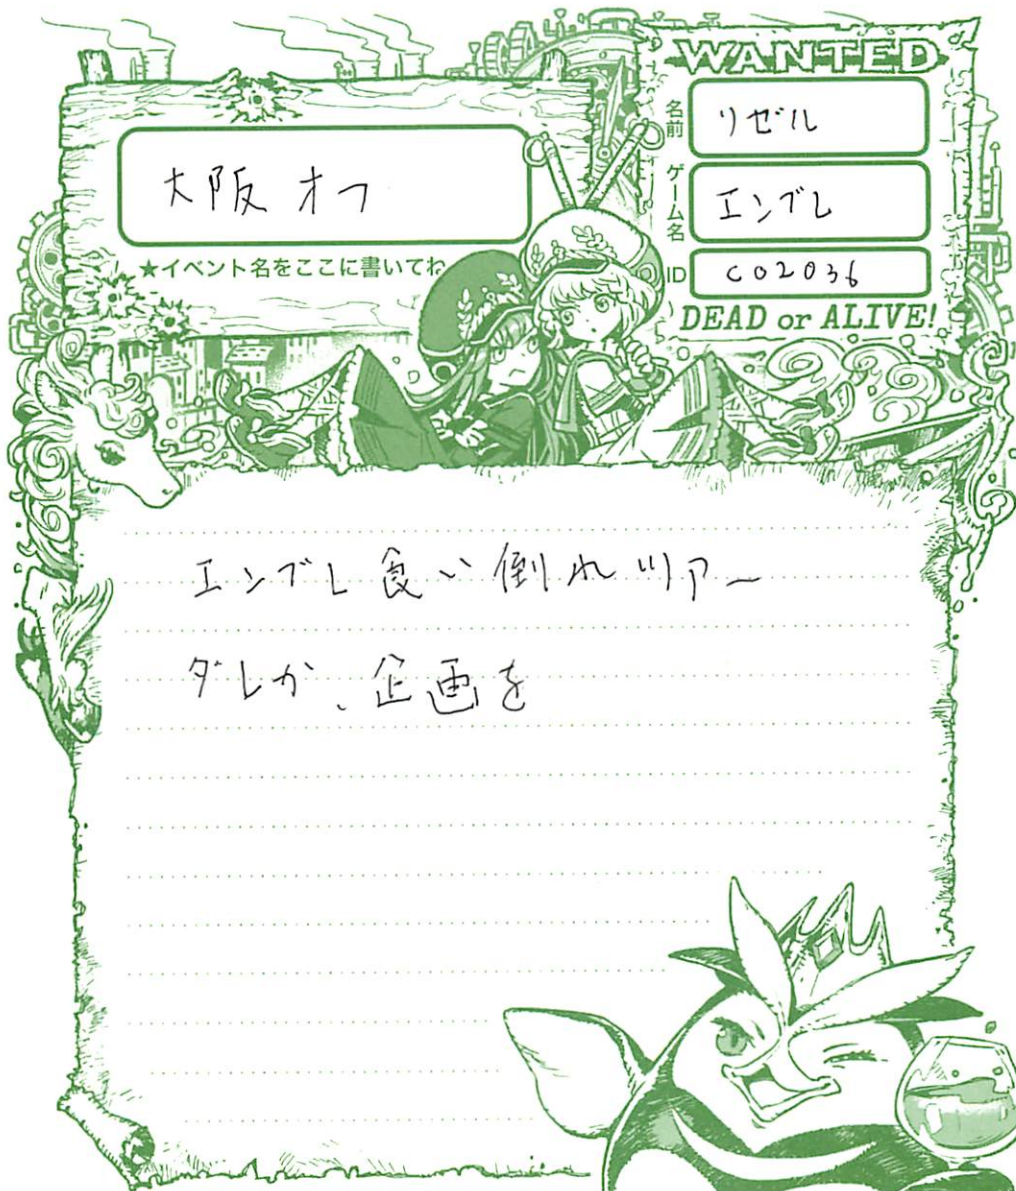 WANTED
大阪オフ
★イベント名をここに書いてね
名前
リゼル
ゲーム名
エンブレ
ID
c02036
DEAD or ALIVE!
エンブレ食い倒れツアー
ダレか、企画を